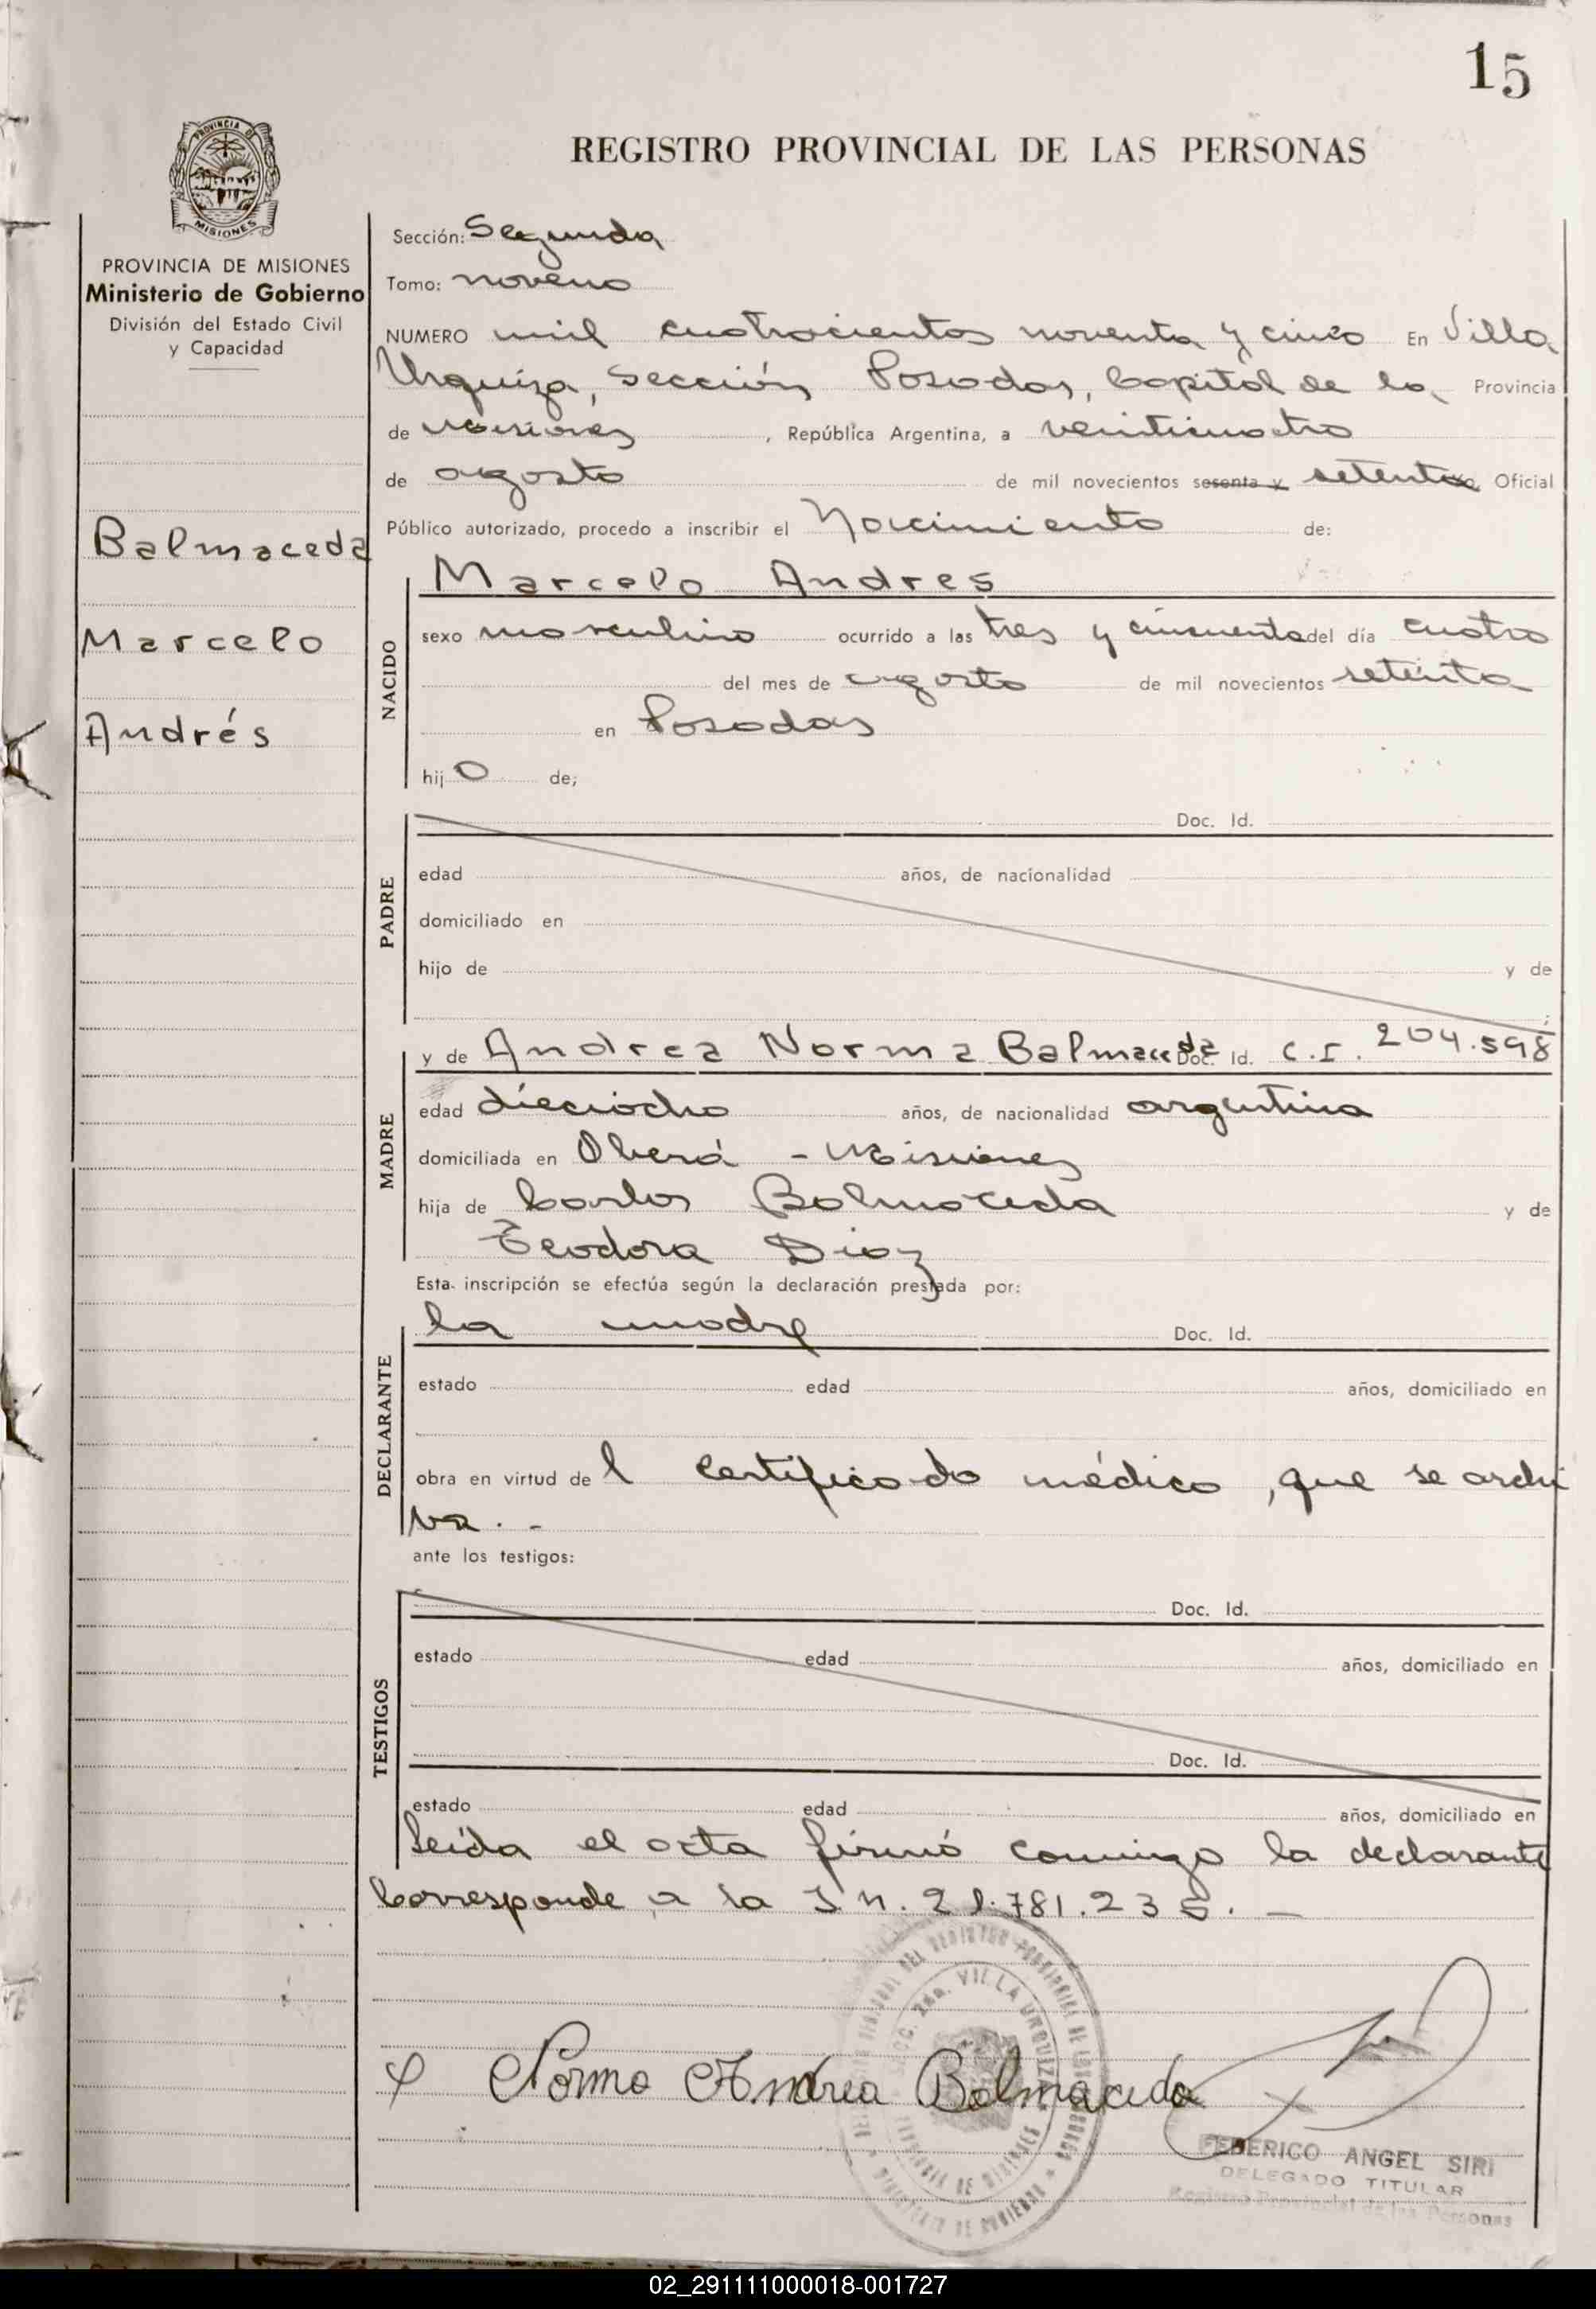 15
PROVINCIA DE
MISIONES
REGISTRO PROVINCIAL DE LAS PERSONAS
PROVINCIA DE MISIONES
Ministerio de Gobierno
División del Estado Civil
y Capacidad
Balmaceda
Marcelo
Andrés
Sección: Segunda
Tomo: noveno
NUMERO mil cuatrocientos noventa y cinco En Villa
Urquiza, Sección Posadas, Capital de la Provincia
de Misiones, República Argentina, a veinticuatro
de agosto de mil novecientos sesenta y setenta Oficial
Público autorizado, procedo a inscribir el Nacimiento de:
Marcelo Andres
NACIDO
sexo masculino ocurrido a las tres y cincuenta del día cuatro
del mes de agosto de mil novecientos setenta
en Posadas
hij o de;
PADRE
Doc. Id.
edad años, de nacionalidad
domiciliado en
hijo de y de
;
MADRE
y de Andrea Norma Balmaceda Doc. Id. C.I. 204.598
edad dieciocho años, de nacionalidad argentina
domiciliada en Oberá - Misiones
hija de Carlos Balmaceda y de
Teodora Diaz
Esta inscripción se efectúa según la declaración prestada por:
DECLARANTE
la madre Doc. Id.
estado edad años, domiciliado en
obra en virtud de l certificado médico, que se archi
va. -
ante los testigos:
TESTIGOS
Doc. Id.
estado edad años, domiciliado en
Doc. Id.
estado edad años, domiciliado en
Leída el acta firmó conmigo la declarante
Corresponde a la I.N. 21.781.235. -
Norma Andrea Balmaceda
VILLA URQUIZA
FEDERICO ANGEL SIRI
DELEGADO TITULAR
Registro Provincial de las Personas
02_291111000018-001727